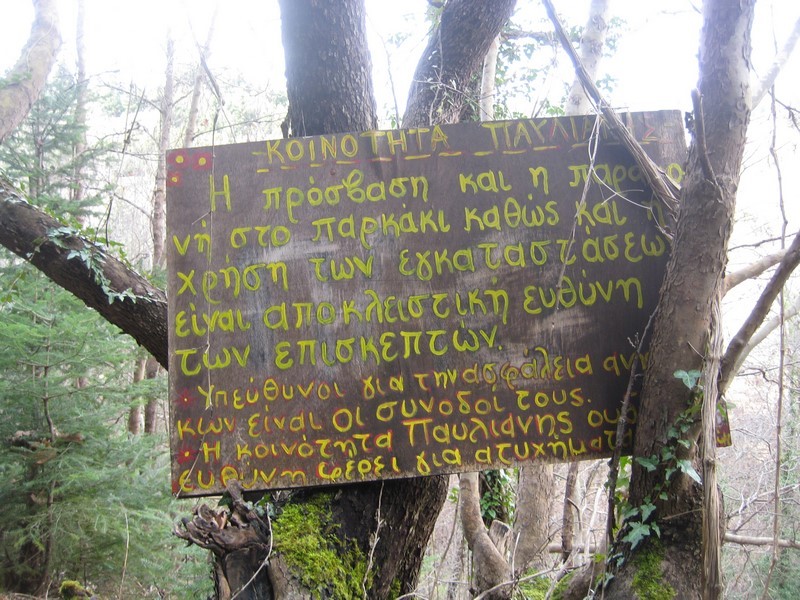 ΚΟΙΝΟΤΗΤΑ ΠΑΥΛΙΑΝΗΣ
Η πρόσβαση και η παραμο
νή στο παρκάκι καθώς και η
χρήση των εγκαταστάσεω
είναι αποκλειστική ευθύνη
των επισκεπτών.
Υπεύθυνοι για την ασφάλεια ανη
κων είναι οι συνοδοί τους.
Η κοινότητα Παυλιάνης ου
ευθύνη φέρει για ατυχήματα